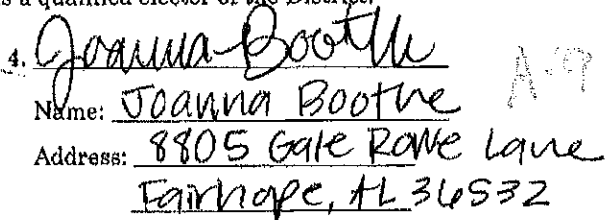 s a qualified elector of the District.
4. Joanna Boothe
Name: Joanna Boothe
Address: 8805 Gale Rowe Lane
Fairhope, AL 36532